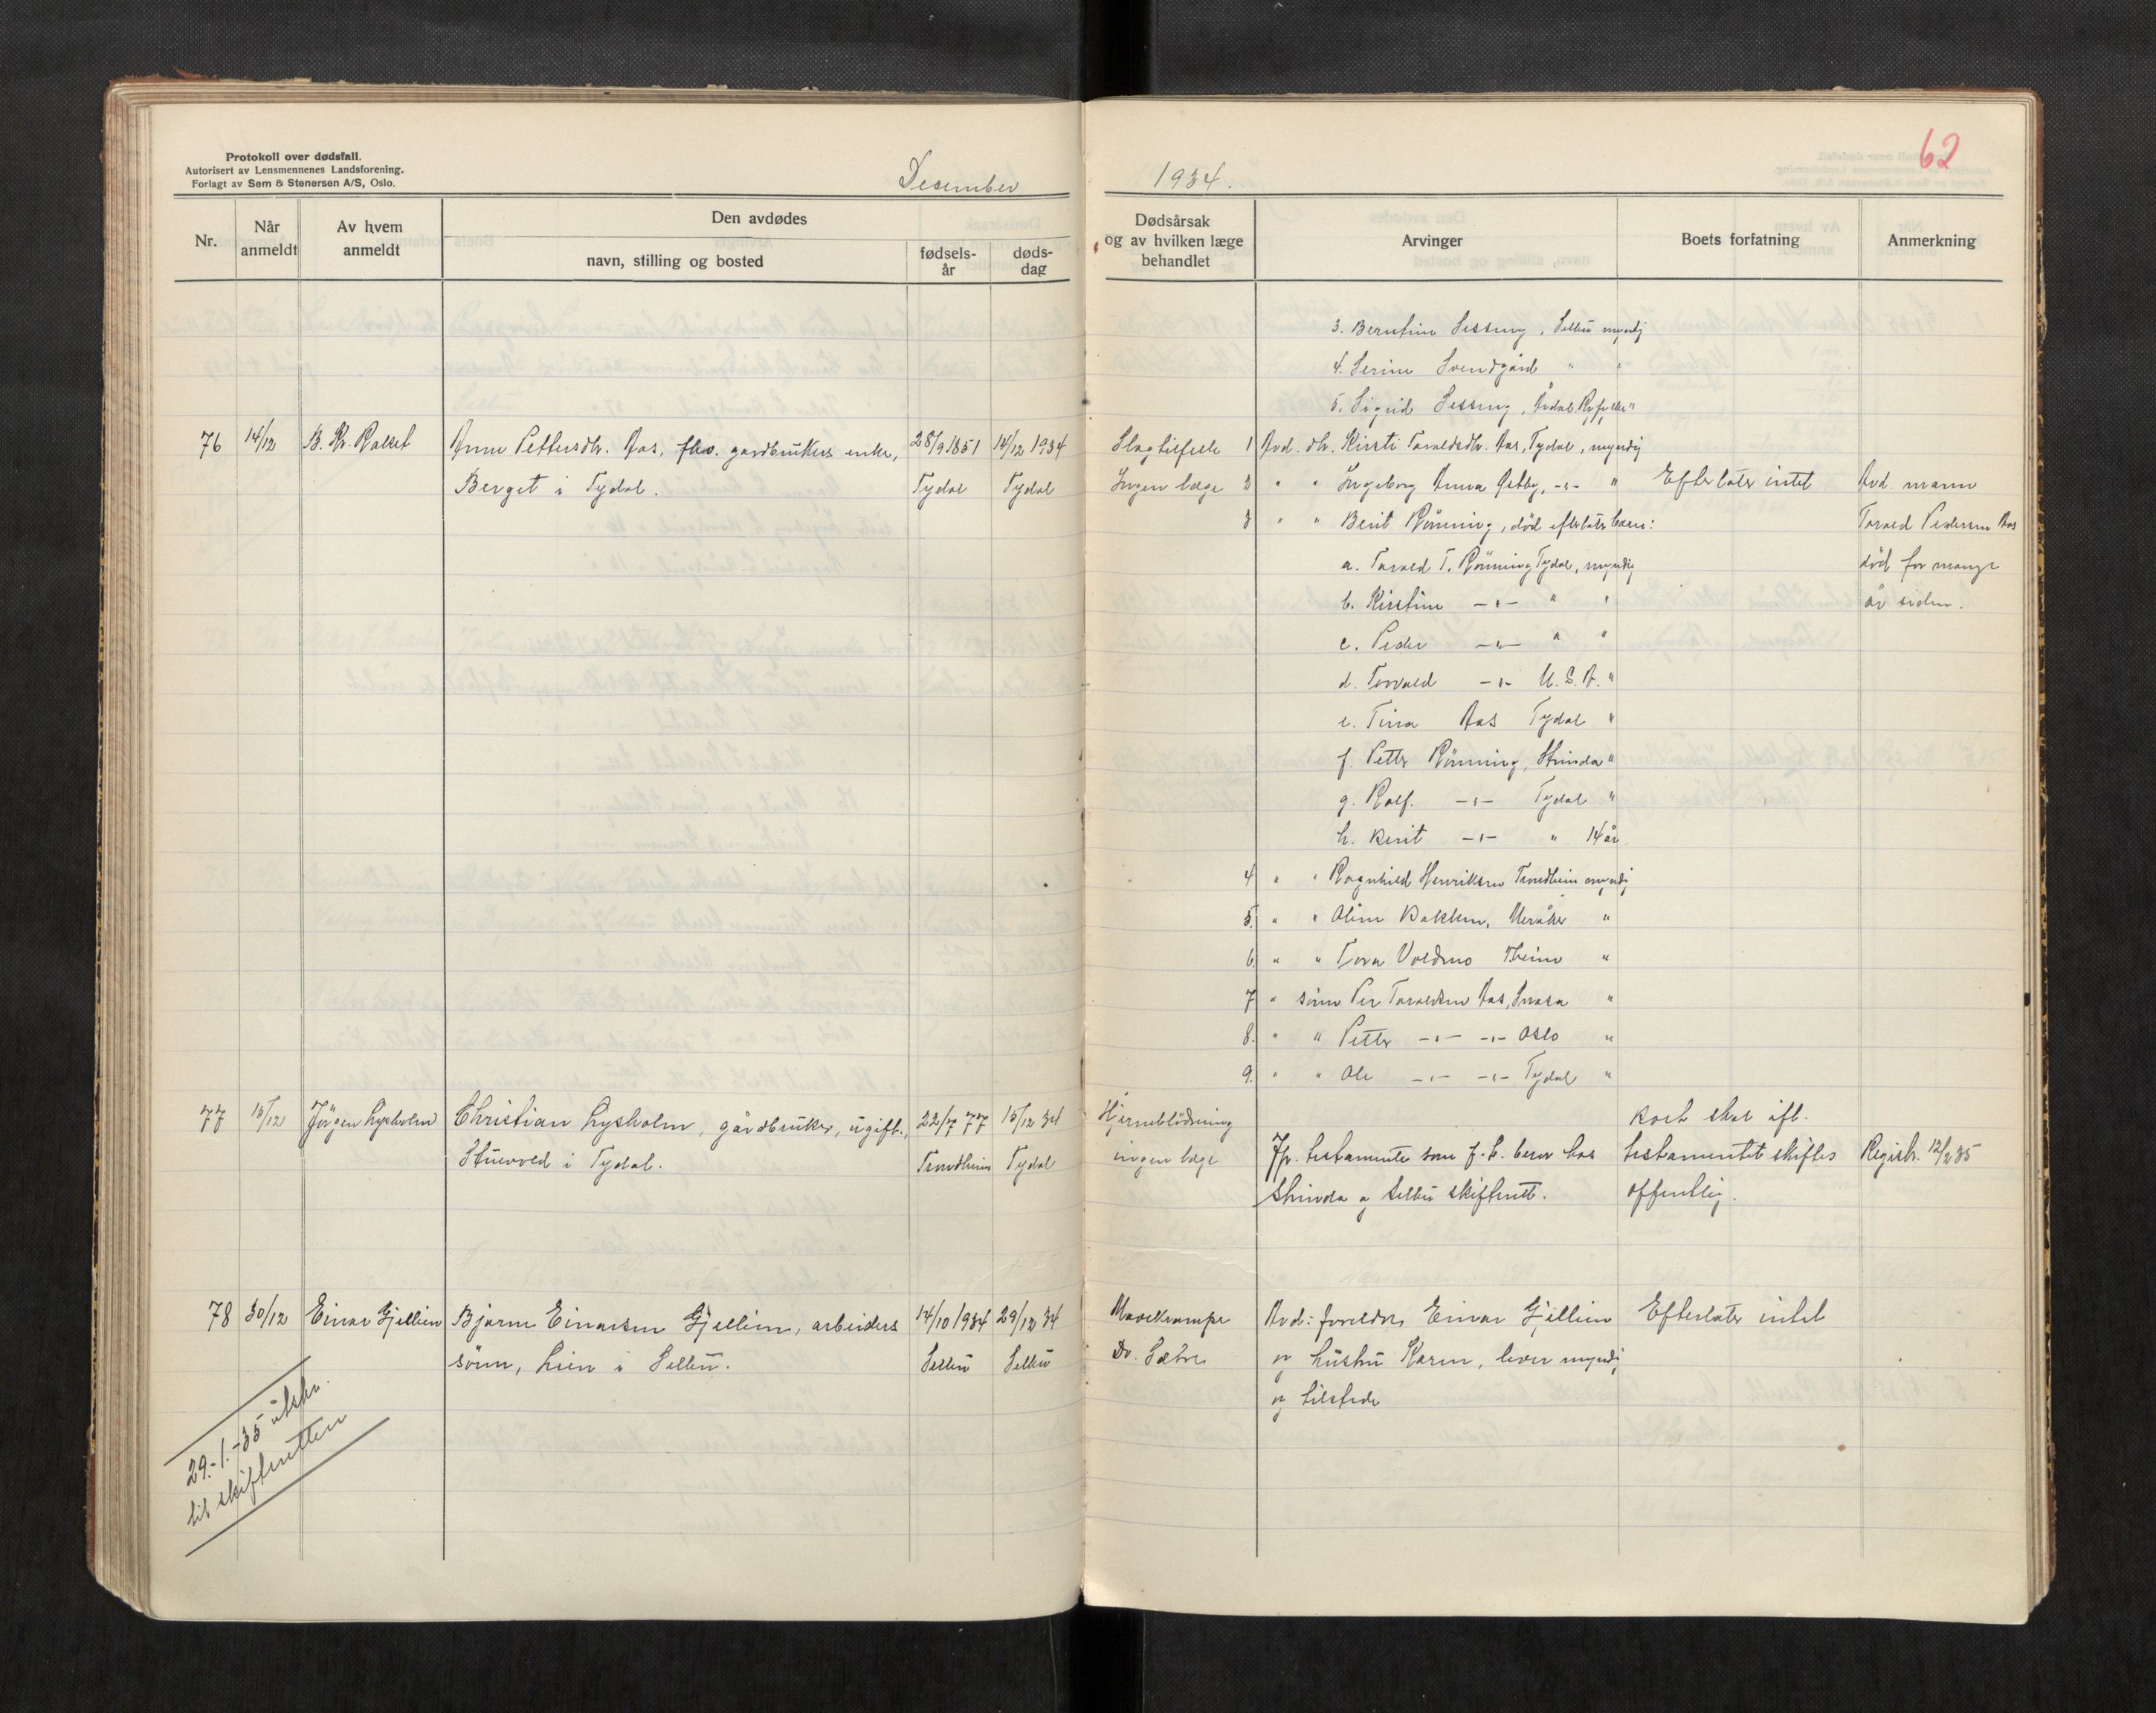 Protokoll over dødsfall.
Autorisert av Lensmennenes Landsforening.
Forlagt av Sem & Stenersen A/S, Oslo.
Desember
1934.
62
Nr.
Når anmeldt
Av hvem anmeldt
Den avdødes
navn, stilling og bosted
fødsels-år
døds-dag
Dødsårsak og av hvilken læge behandlet
Arvinger
Boets forfatning
Anmerkning
3. Berntine Sesseng, Selbu myndig
4. Serine Svendgård " "
5. Sigrid Sesseng,
76 14/12 B. Kr. Rolset Anne Pettersdtr. Aas, fhv. gardbrukers enke, 28/9 1851 14/12 1934 Slagtilfelle 1 Avd. dtr. Kirsti Taraldsdtr. Aas, Tydal, myndig
Berget i Tydal. Tydal Tydal Ingen læge 2 " " Ingeborg Anna Østby, -"- " Efterlater intet Avd. mann
3 " " Berit Rønning, død efterlater barn: Tarald Pedersen Aas
a. Tarald T. Rønning Tydal, myndig død for mange
b. Kirstine -"- " " år siden.
c. Peder -"- " "
d. Torvald -"- U.S.A. "
e. Tina Aas Tydal "
f. Petter Rønning, Strinda "
g. Rolf. -"- Tydal "
h. Berit -"- " 14 år
4 " " Ragnhild Henriksen Trondheim myndig
5. " " Oline Bakken, Meråker "
6. " " Tora Voldmo Theim "
7 " sønn Per Taraldsen Aas, Snåsa "
8. " " Petter -"- -"- Oslo "
9. " " Ole -"- -"- Tydal "
77 15/12 Jörgen Lysholm Christian Lysholm, gårdbruker, ugift., 22/7 77 15/12 34 Hjerneblödning Boet skal ifl.
Stuevold i Tydal. Trondheim Tydal ingen læge Jfr. testamente som f. t. beror hos testamentet skiftes Registr. 12/2 35
Strinda og Selbu skifterett. offentlig.
78 30/12 Einar Gjellien Bjarne Einarsen Gjellien, arbeiders 14/10 1934 29/12 34 Mavekrampe Avd: foreldre Einar Gjellien Efterlater intet
sönn, Lien i Selbu. Selbu Selbu Dr. Sætre og hustru Karen, lever myndig
og tilstede
29.-1.-35 utskr.
til skifteretten